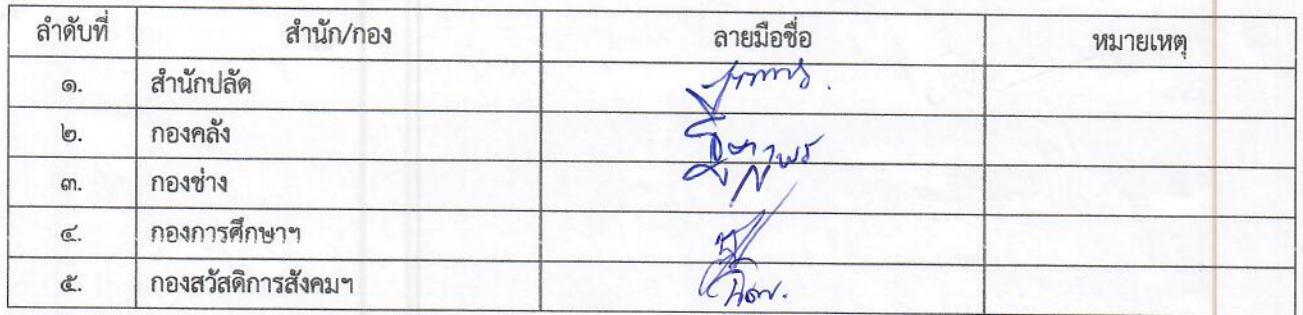 ลำดับที่ สำนัก/กอง ลายมือชื่อ หมายเหตุ
๑. สำนักปลัด
๒. กองคลัง
๓. กองช่าง
๔. กองการศึกษาฯ
๕. กองสวัสดิการสังคมฯ